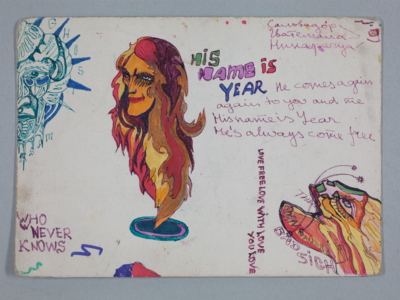 Сальвадор
Гватемала
Никарагуа
HIS
NAME IS
YEAR
He comes again
again to you and me
His name is Year
He's always come free
LIVE FREE LOVE WITH LOVE
YOU LOVE
WHO
NEVER
KNOWS